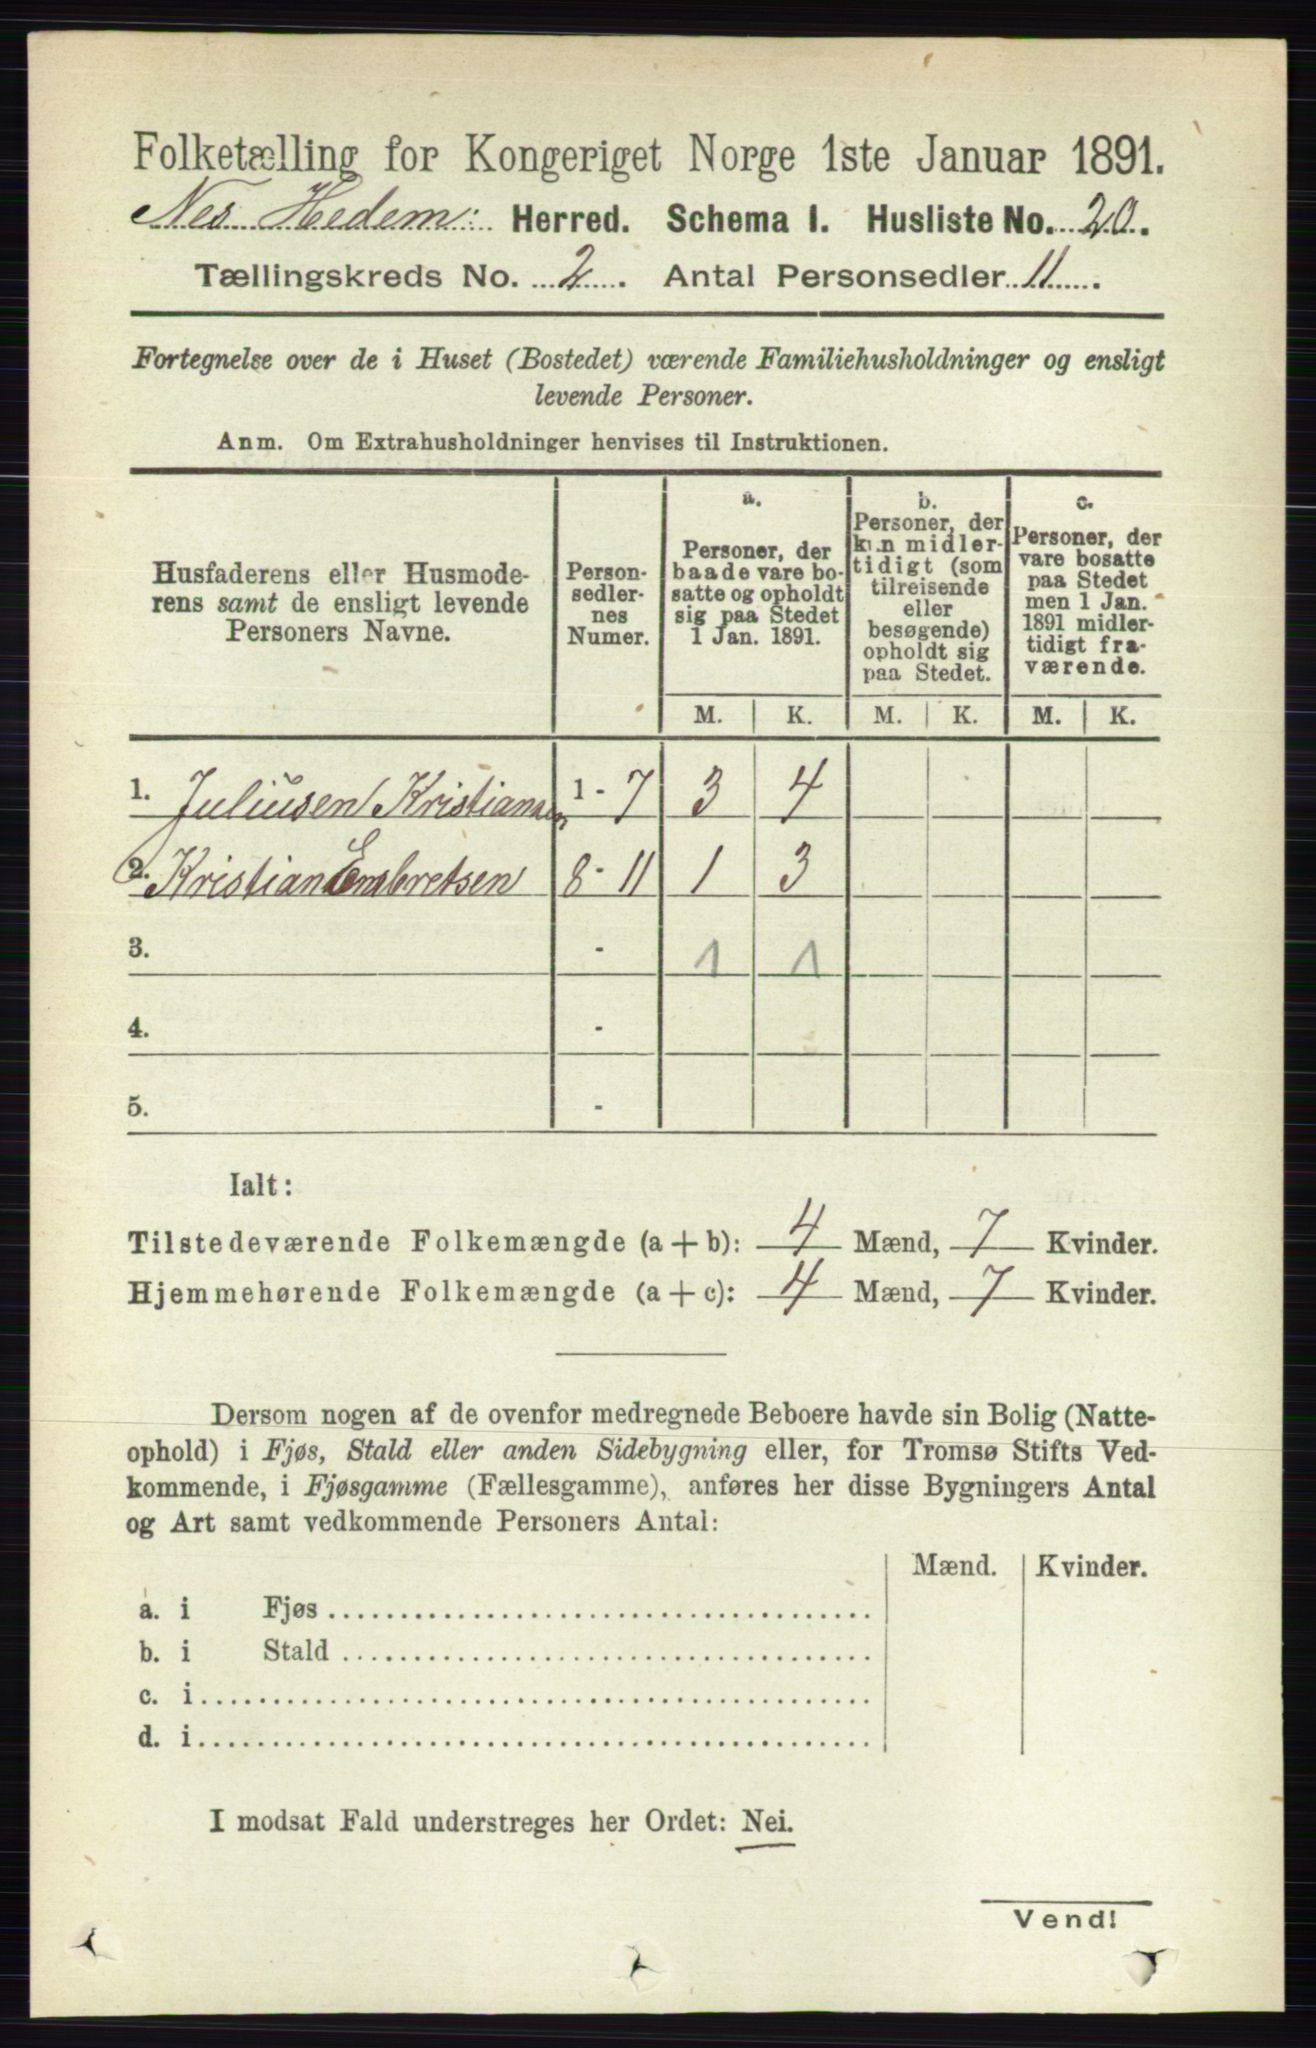 Folketælling for Kongeriget Norge 1ste Januar 1891.
Nes Hedem: Herred. Schema I. Husliste No. 20.
Tællingskreds No. 2. Antal Personsedler 11.
Fortegnelse over de i Huset (Bostedet) værende Familiehusholdninger og ensligt
levende Personer.
Anm. Om Extrahusholdninger henvises til Instruktionen.
Husfaderens eller Husmode-
rens samt de ensligt levende
Personers Navne.
Person-
sedler-
nes
Numer.
a.
Personer, der
baade vare bo-
satte og opholdt
sig paa Stedet
1 Jan. 1891.
b.
Personer, der
kun midler-
tidigt (som
tilreisende
eller
besøgende)
opholdt sig
paa Stedet.
c.
Personer, der
vare bosatte
paa Stedet
men 1 Jan.
1891 midler-
tidigt fra-
værende.
M. K. M. K. M. K.
1. Juliusen Kristiansen 1 - 7 3 4
2. Kristian Embretsen 8 - 11 1 3
3. - 1 1
4. -
5. -
Ialt:
Tilstedeværende Folkemængde (a + b): 4 Mænd, 7 Kvinder.
Hjemmehørende Folkemængde (a + c): 4 Mænd, 7 Kvinder.
Dersom nogen af de ovenfor medregnede Beboere havde sin Bolig (Natte-
ophold) i Fjøs, Stald eller anden Sidebygning eller, for Tromsø Stifts Ved-
kommende, i Fjøsgamme (Fællesgamme), anføres her disse Bygningers Antal
og Art samt vedkommende Personers Antal:
Mænd. Kvinder.
a. i Fjøs
b. i Stald
c. i
d. i
I modsat Fald understreges her Ordet: Nei.
Vend!